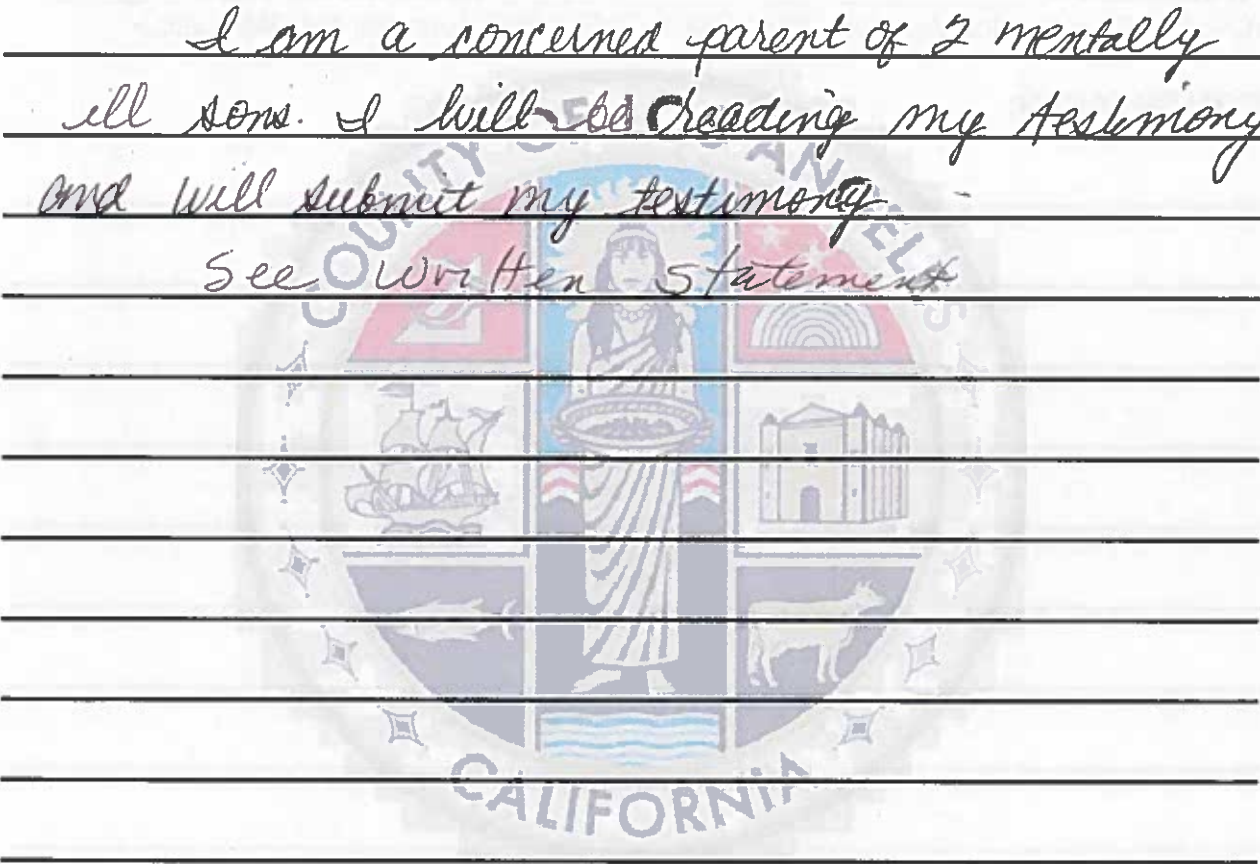 I am a concerned parent of 2 mentally
ill sons. I will be reading my testimony
and will submit my testimony
See Written Statement
COUNTY OF LOS ANGELES
CALIFORNIA